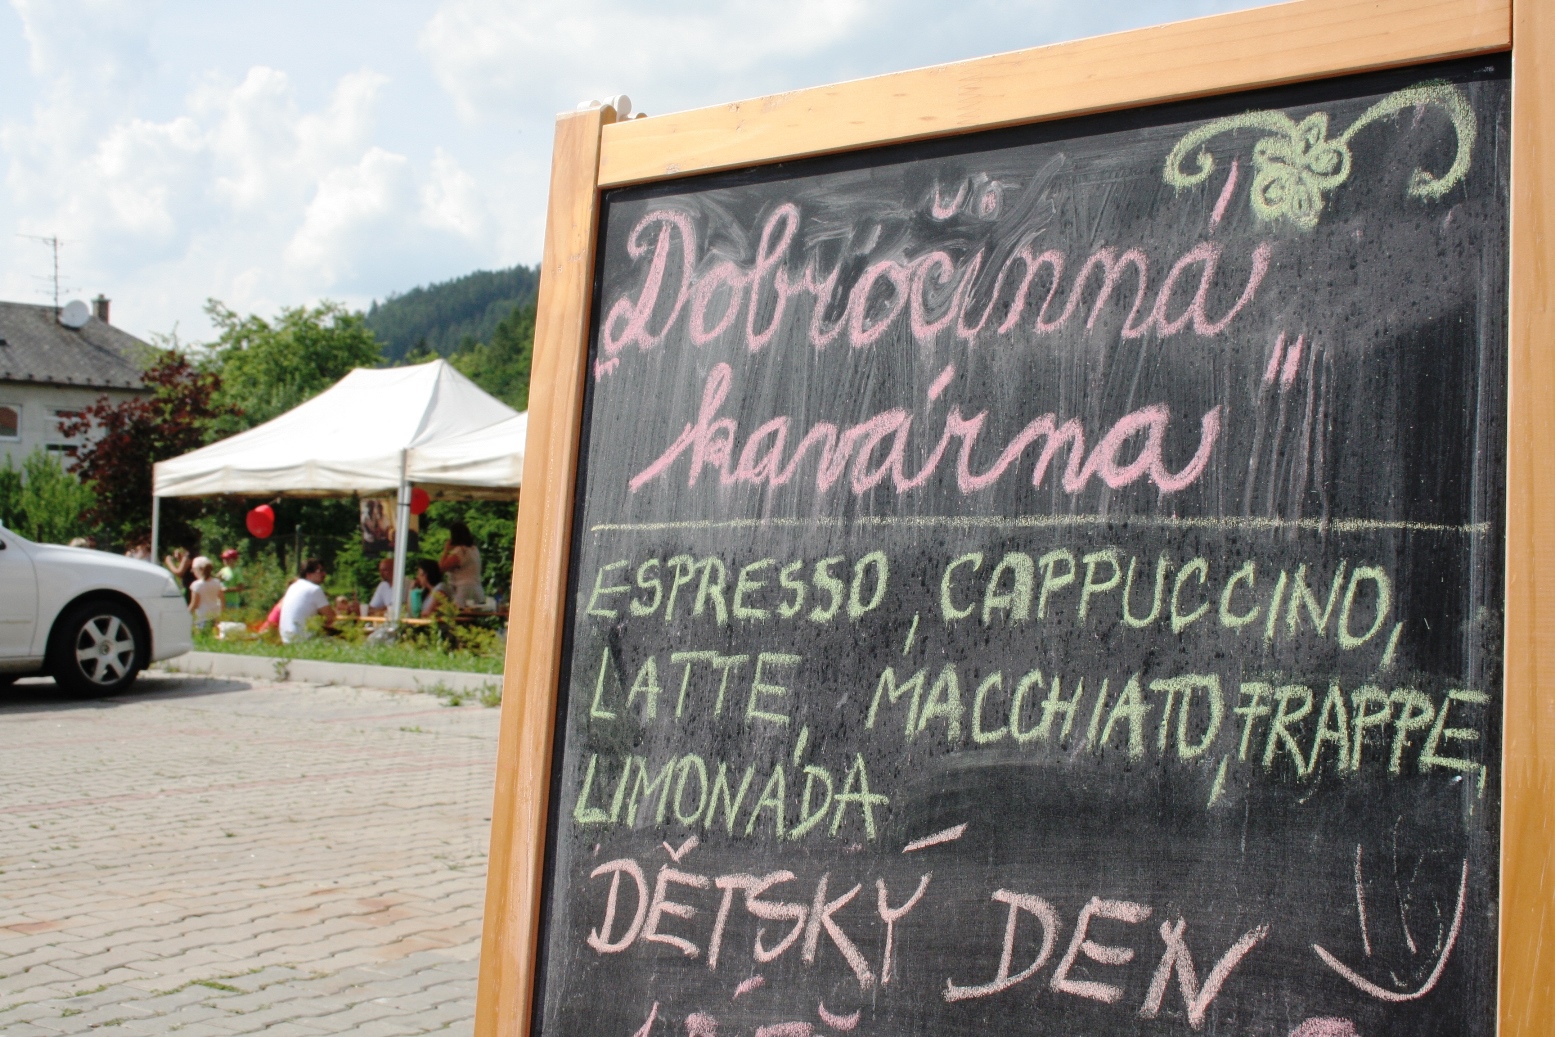 „Dobročinná
kavárna"
ESPRESSO, CAPPUCCINO,
LATTE, MACCHIATO, FRAPPE,
LIMONÁDA
DĚTSKÝ DEN